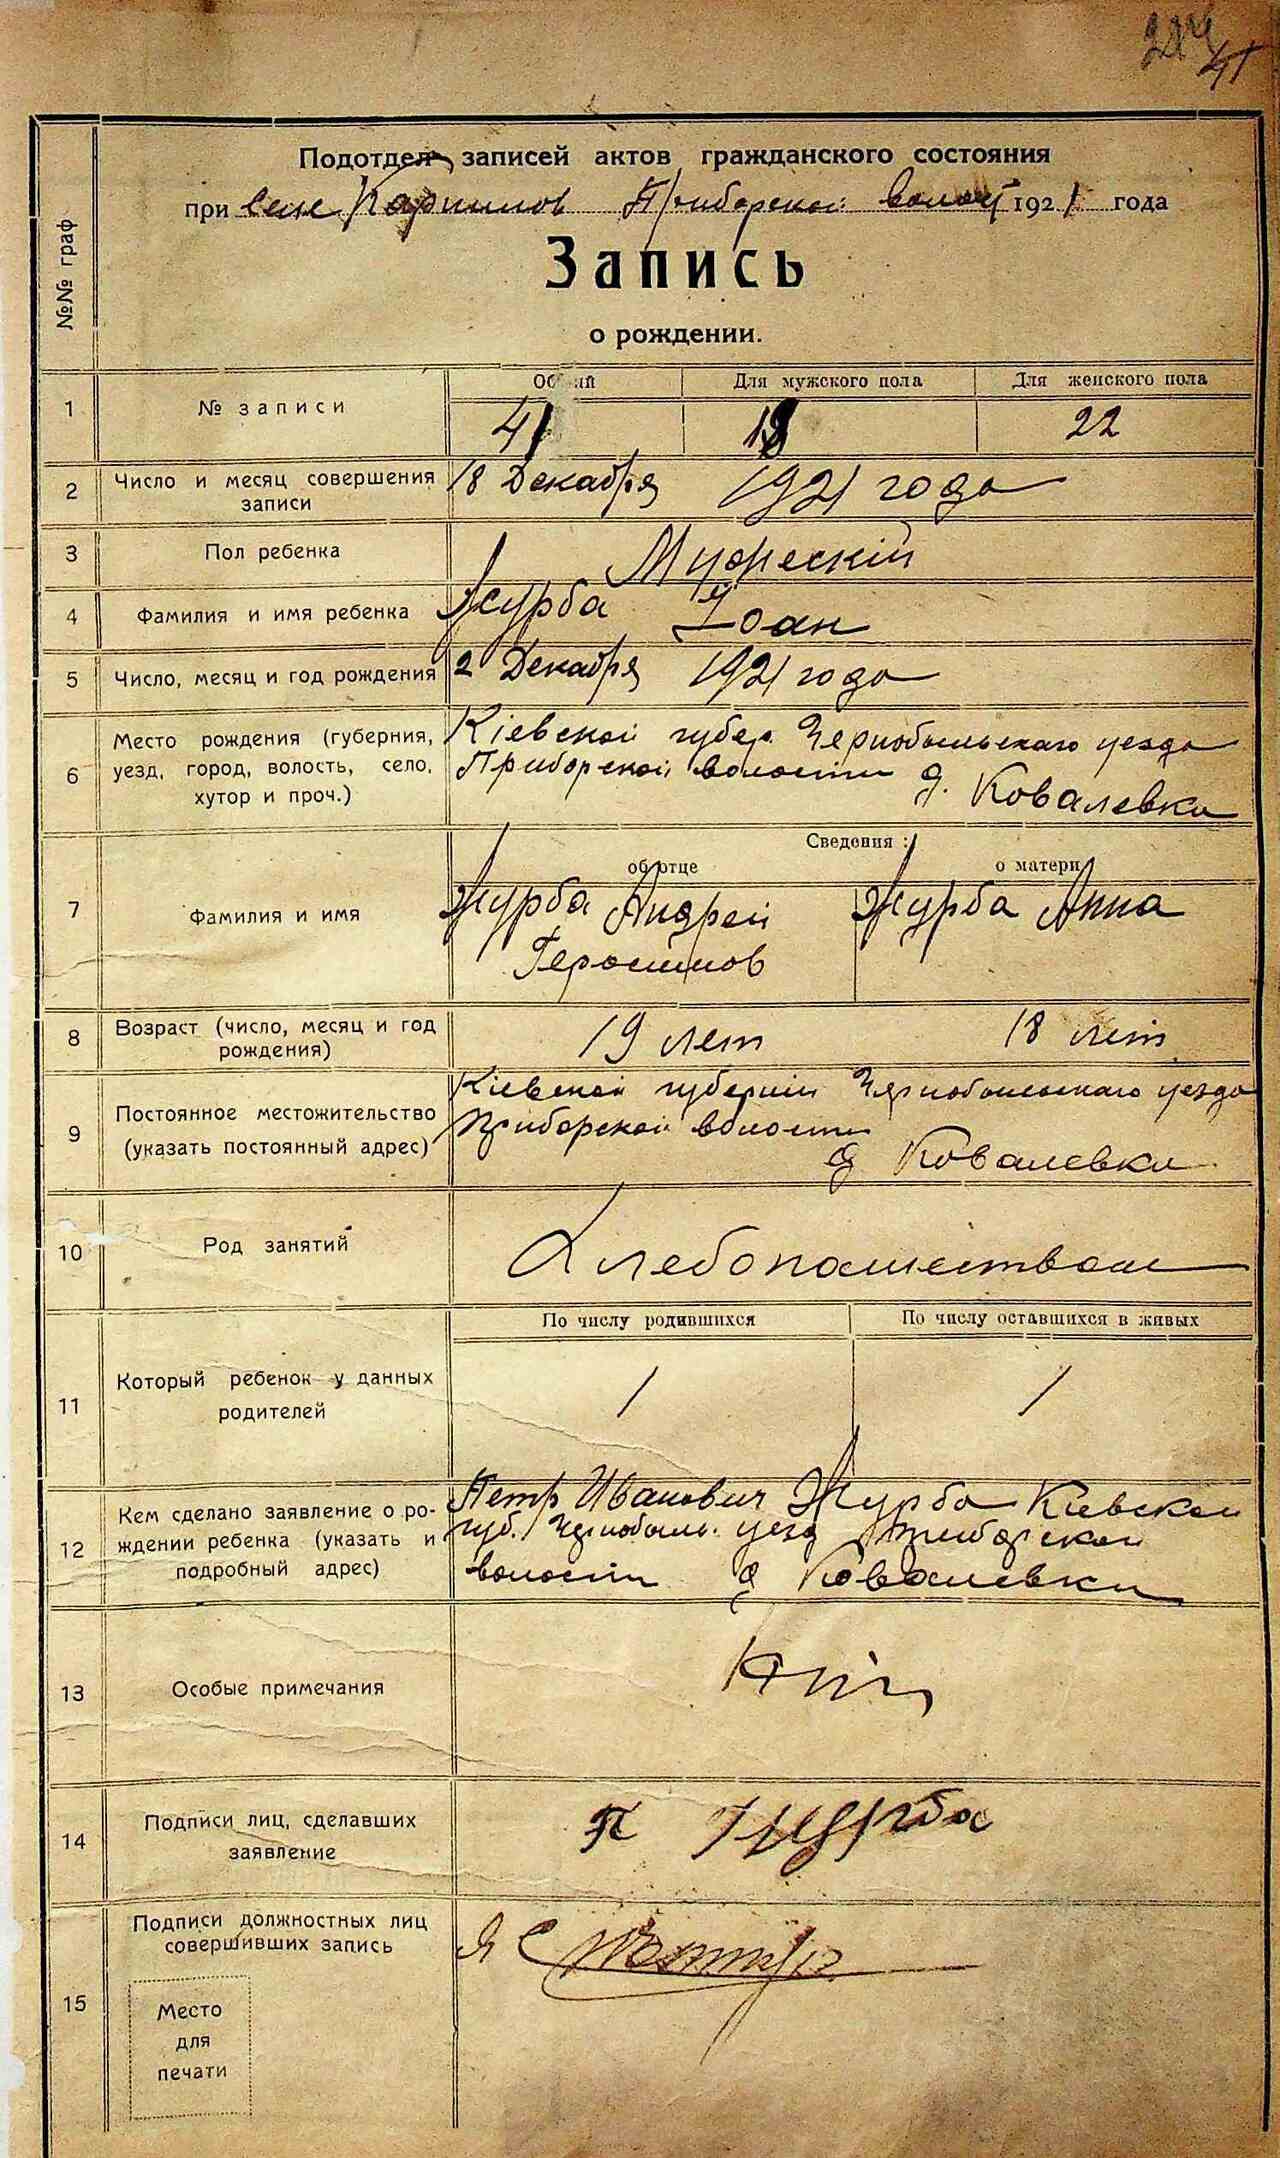 41
Подотдел записей актов гражданского состояния
при селе Карпилов Приборской волост 1921 года
№№ граф
Запись
о рождении.
Общий Для мужского пола Для женского пола
1 № записи 41 19 22
2 Число и месяц совершения записи 18 Декабря 1921 года
3 Пол ребенка Мужескiй
4 Фамилия и имя ребенка Журба Иоан
5 Число, месяц и год рождения 2 Декабря 1921 года
6 Место рождения (губерния, Кiевской губер. Чернобыльскаго уезда
уезд, город, волость, село, Приборской волости д. Ковалевка
хутор и проч.)
Сведения:
об отце о матери
7 Фамилия и имя Журба Андрей Журба Анна
Герасимов
8 Возраст (число, месяц и год 19 лет 18 лет
рождения)
Кiевской губернiи Чернобыльскаго уезда
9 Постоянное местожительство Приборской волости
(указать постоянный адрес) д Ковалевка
10 Род занятий Хлебопашеством
По числу родившихся По числу оставшихся в живых
11 Который ребенок у данных 1 1
родителей
12 Кем сделано заявление о ро- Петр Иванович Журба Киевской
ждении ребенка (указать и губ. Чернобыль. уезд Приборской
подробный адрес) волости д Ковалевки
13 Особые примечания Нет
14 Подписи лиц, сделавших П Журба
заявление
Подписи должностных лиц
совершивших запись
15
Место
для
печати